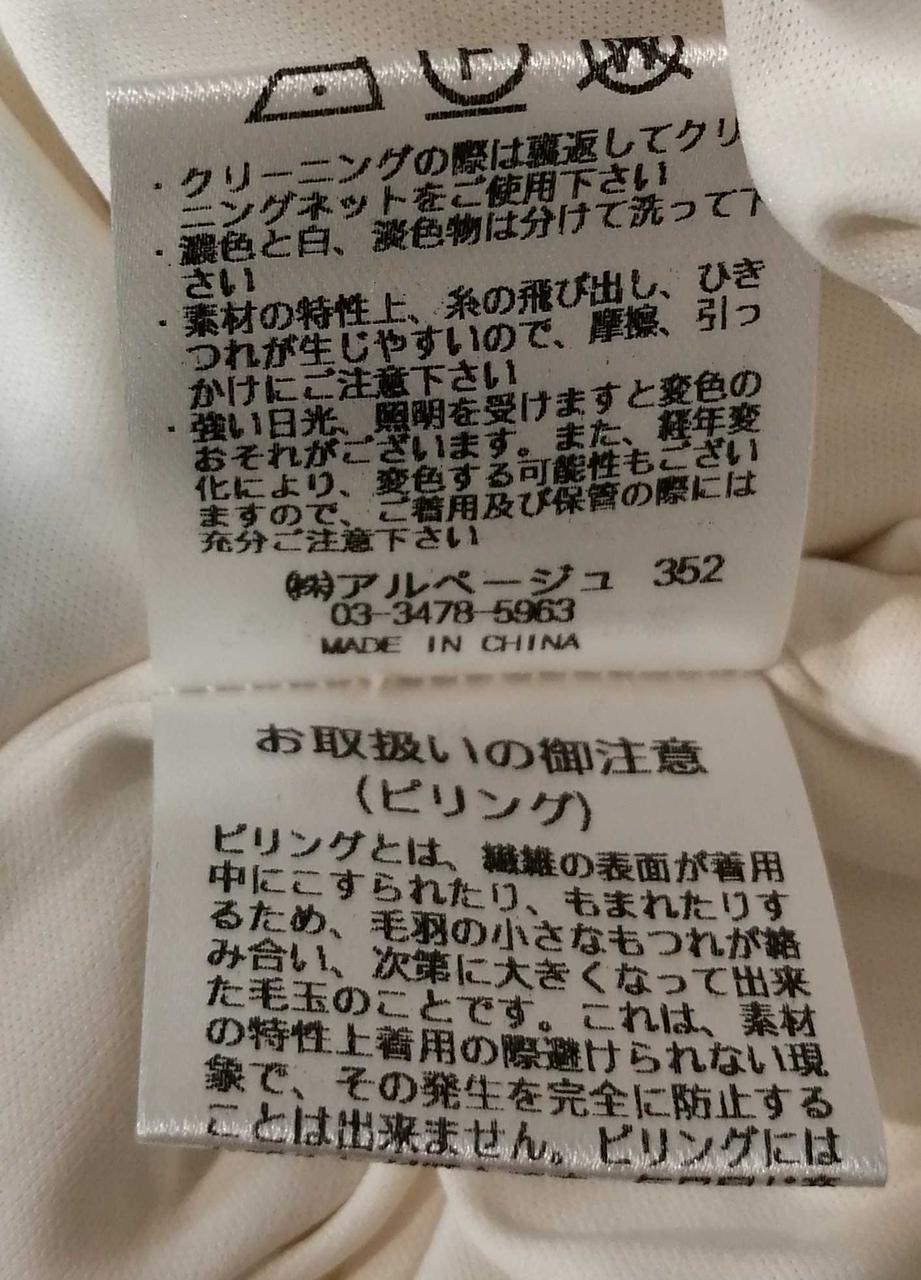 ・クリーニングの際は裏返してクリ
ニングネットをご使用下さい
・濃色と白、淡色物は分けて洗って下
さい
・素材の特性上、糸の飛び出し、ひき
つれが生じやすいので、摩擦、引っ
かけにご注意下さい
・強い日光、照明を受けますと変色の
おそれがございます。また、経年変
化により、変色する可能性もござい
ますので、ご着用及び保管の際には
充分ご注意下さい
㈱アルページュ 352
03-3478-5963
MADE IN CHINA
お取扱いの御注意
(ピリング)
ピリングとは、繊維の表面が着用
中にこすられたり、もまれたりす
るため、毛羽の小さなもつれが絡
み合い、次第に大きくなって出来
た毛玉のことです。これは、素材
の特性上着用の際避けられない現
象で、その発生を完全に防止する
ことは出来ません。ピリングには